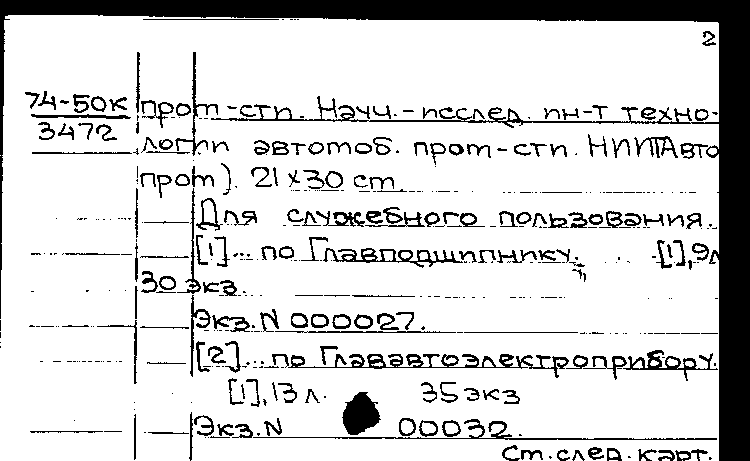 2
74-50к пром-сти. Науч.-исслед. ин-т техно-
3472
логии автомоб. пром-сти. НИИТАвто
пром). 21х30 cm.
Для служебного пользования.
[1]... по Главподшипнику. .. [1],9л
30 экз.
Экз.N 000027.
[2]... по Глававтоэлектроприбору.
[1],13 л. 35 экз
Экз.N 00032.
Ст.след.карт.